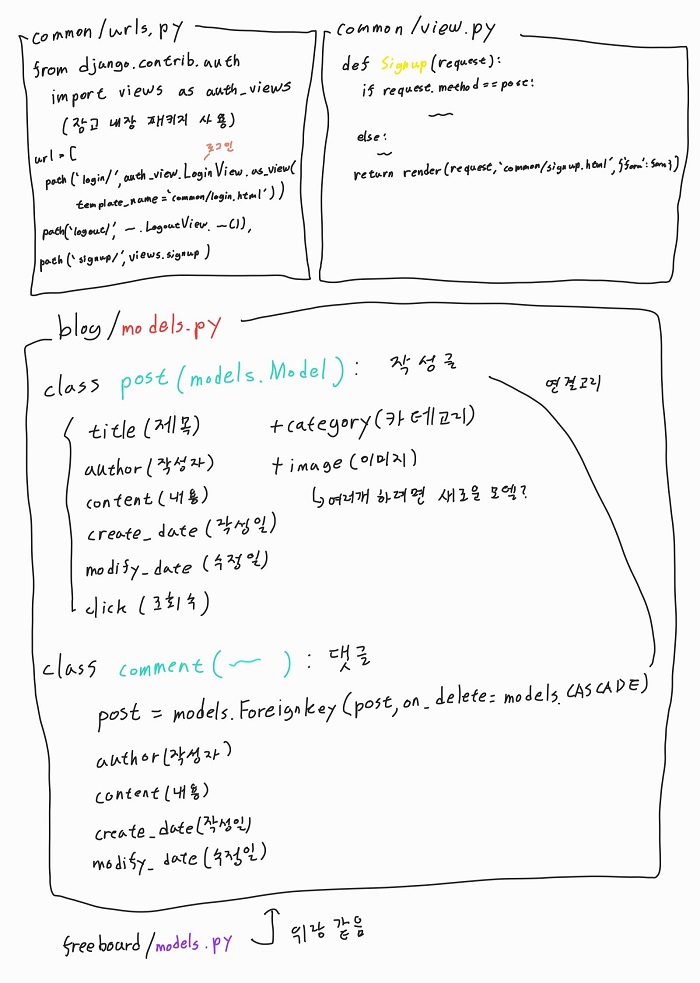 common/urls.py
from django.contrib.auth
import views as auth_views
(장고 내장 패키지 사용)
로그인
url = [
path('login/', auth_view.LoginView.as_view(
template_name='common/login.html'))
path('logout/', ~.LogoutView.~()),
path('signup/', views.signup)
common/view.py
def Signup(request):
if request.method == post:
~
else:
~
return render(request, 'common/signup.html', {'form': form})
blog/models.py
class post(models.Model): 작성글
연결고리
title (제목) +category(카테고리)
author(작성자) +image(이미지)
content(내용) ↳여러개 하려면 새로운 모델?
create_date (작성일)
modify_date (수정일)
click (조회수)
class comment( ~ ): 댓글
post = models.Foreignkey(post, on_delete= models.CASCADE)
author(작성자)
content(내용)
create_date(작성일)
modify_date (수정일)
freeboard/models.py 위랑 같음